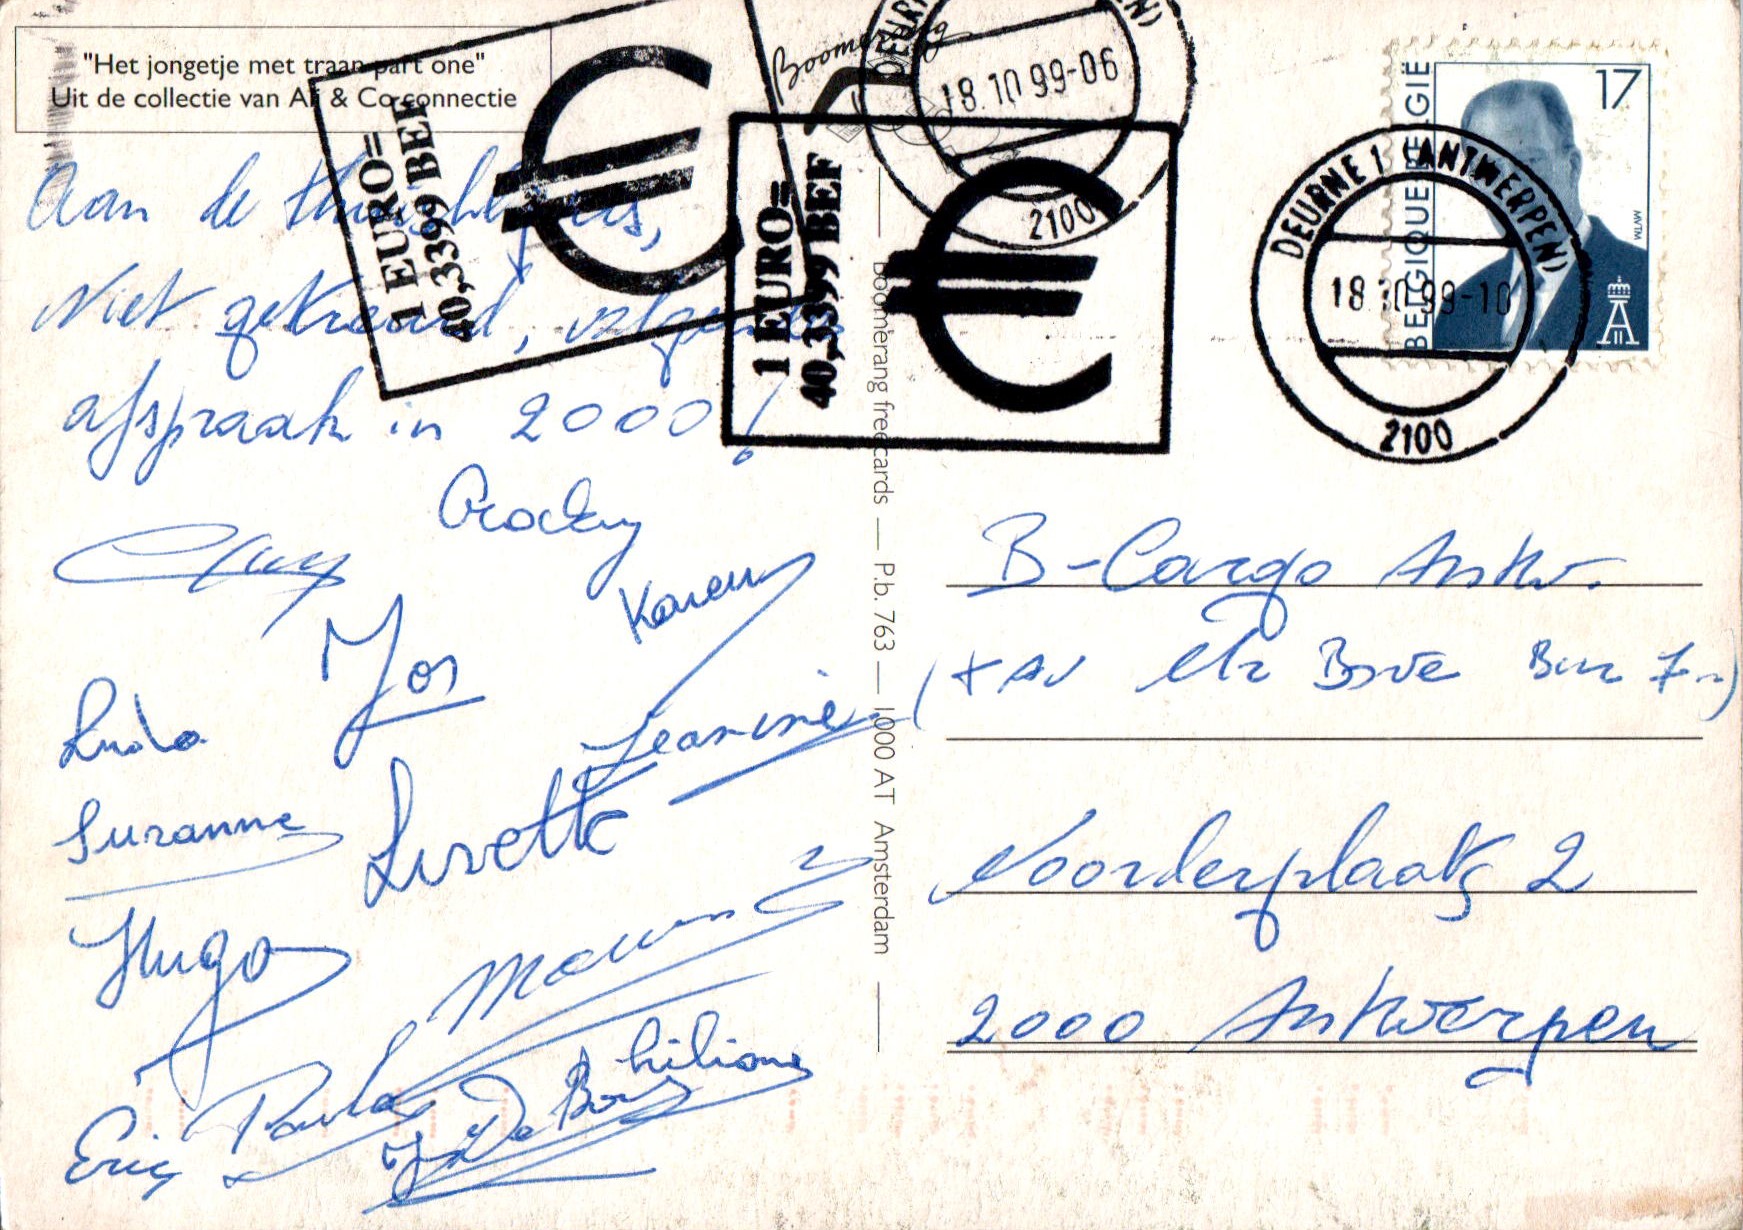 "Het jongetje met traan part one"
Uit de collectie van Ali & Co connectie
Aan de thuisblijvers,
Niet getreurd, volgende
afspraak in 2000!
Karen
Jos
Ludo
Jeannine
Suzanne
Livette
Hugo
Liliane
Paula
De Bous
Eric
1 EURO=
40,3399 BEF
€
1 EURO=
40,3399 BEF
€
Boomerang
DEURNE PEN)
18.10 99-06
2100
Boomerang freecards — P.b. 763 — 1000 AT Amsterdam
17
BELGIQUE BELGIË
MVTM
A II
DEURNE 1 (ANTWERPEN)
18 10 99-10
2100
B-Cargo Antw.
Noorderplaats 2
2000 Antwerpen